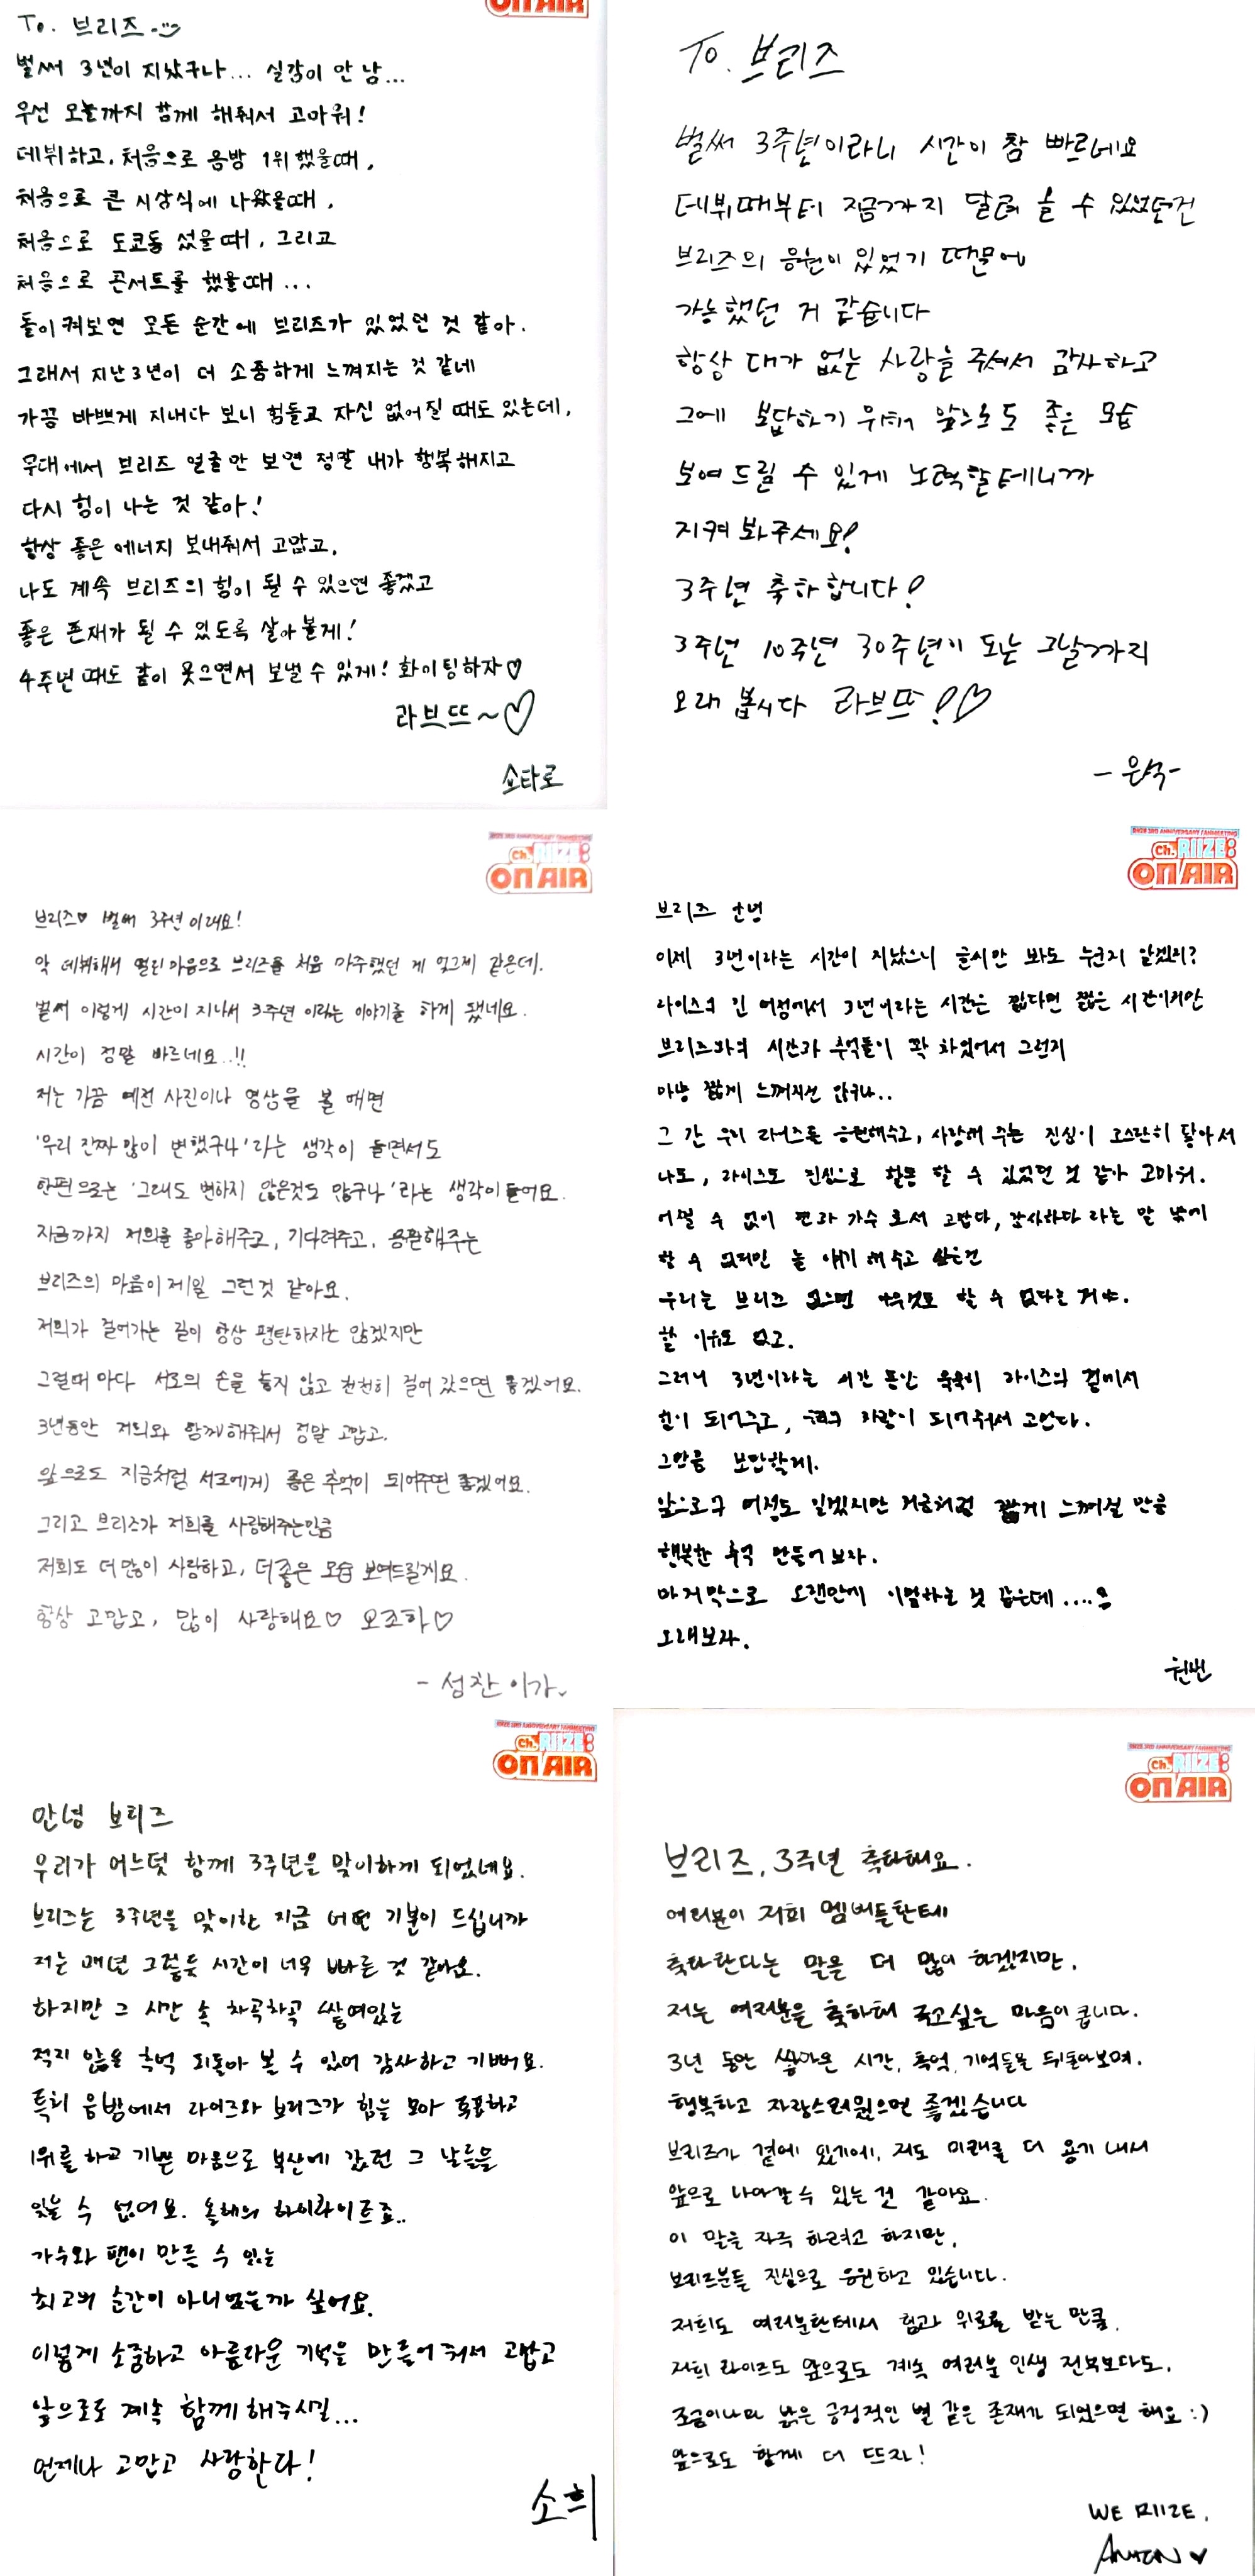 ON AIR
To. 브리즈
벌써 3년이 지났구나... 실감이 안 남...
우선 오늘까지 함께 해줘서 고마워!
데뷔하고, 처음으로 음방 1위 했을때,
처음으로 큰 시상식에 나왔을때,
처음으로 도쿄돔 섰을때, 그리고
처음으로 콘서트를 했을때...
돌이켜보면 모든 순간에 브리즈가 있었던 것 같아.
그래서 지난 3년이 더 소중하게 느껴지는 것 같네
가끔 바쁘게 지내다 보니 힘들고 자신 없어질 때도 있는데,
무대에서 브리즈 얼굴만 보면 정말 내가 행복해지고
다시 힘이 나는 것 같아!
항상 좋은 에너지 보내줘서 고맙고,
나도 계속 브리즈의 힘이 될 수 있으면 좋겠고
좋은 존재가 될 수 있도록 살아볼게!
4주년 때도 같이 웃으면서 보낼 수 있게! 화이팅하자♡
라브뜨~♡
쇼타로
To. 브리즈
벌써 3주년이라니 시간이 참 빠르네요
데뷔때부터 지금까지 달려 올 수 있었던건
브리즈의 응원이 있었기 때문에
가능했던 거 같습니다
항상 대가 없는 사랑을 주셔서 감사하고
그에 보답하기 위해 앞으로도 좋은 모습
보여드릴 수 있게 노력할테니까
지켜봐주세요!
3주년 축하합니다!
3주년 10주년 30주년이 되는 그날까지
오래 봅시다 라브뜨!♡
-은석-
RIIZE 3RD ANNIVERSARY FANMEETING
Ch. RIIZE:
ON AIR
브리즈♡ 벌써 3주년이래요!
막 데뷔해서 떨린 마음으로 브리즈를 처음 마주했던 게 엊그제 같은데,
벌써 이렇게 시간이 지나서 3주년 이라는 이야기를 하게 됐네요.
시간이 정말 빠르네요..!!
저는 가끔 예전 사진이나 영상을 볼 때면
'우리 진짜 많이 변했구나'라는 생각이 들면서도
한편으로는 '그래도 변하지 않은것도 많구나'라는 생각이 들어요.
지금까지 저희를 좋아해주고, 기다려주고, 응원해주는
브리즈의 마음이 제일 그런것 같아요.
저희가 걸어가는 길이 항상 평탄하지는 않겠지만
그럴때 마다 서로의 손을 놓지 않고 천천히 걸어 갔으면 좋겠어요.
3년동안 저희와 함께해줘서 정말 고맙고,
앞으로도 지금처럼 서로에게 좋은 추억이 되어주면 좋겠어요.
그리고 브리즈가 저희를 사랑해주는만큼
저희도 더 많이 사랑하고, 더 좋은 모습 보여드릴게요.
항상 고맙고, 많이 사랑해요♡ 오조하♡
- 성찬이가.
RIIZE 3RD ANNIVERSARY FANMEETING
Ch. RIIZE:
ON AIR
브리즈 안녕
이제 3년이라는 시간이 지났으니 글씨만 봐도 누군지 알겠지?
라이즈의 긴 여정에서 3년이라는 시간은 짧다면 짧은 시간이지만
브리즈와의 시간과 추억들이 꽉 차있어서 그런지
마냥 짧게 느껴지진 않구나..
그 간 우리 라이즈를 응원해주고, 사랑해 주는 진심이 고스란히 닿아서
나도, 라이즈도 진심으로 활동 할 수 있었던 것 같아 고마워.
어쩔 수 없이 팬과 가수 로서 고맙다, 감사하다 라는 말 밖에
할 수 없지만 늘 얘기 해주고 싶은건
우리는 브리즈 없으면 아무것도 할 수 없다는 거야.
할 이유도 없고.
그러니 3년이라는 시간 동안 묵묵히 라이즈의 곁에서
힘이 되어주고, 자랑이 되어줘서 고맙다.
그만큼 보답할게.
앞으로의 여정도 길겠지만 지금처럼 짧게 느껴질 만큼
행복한 추억 만들어보자.
마지막으로 오랜만에 이말하는 것 같은데....
오래보자.
원빈
RIIZE 3RD ANNIVERSARY FANMEETING
Ch. RIIZE:
ON AIR
안녕 브리즈
우리가 어느덧 함께 3주년을 맞이하게 되었네요.
브리즈는 3주년을 맞이한 지금 어떤 기분이 드십니까
저는 매년 그렇듯 시간이 너무 빠른 것 같아요.
하지만 그 시간 속 차곡차곡 쌓여있는
적지 않은 추억 되돌아 볼 수 있어 감사하고 기뻐요.
특히 음방에서 라이즈와 브리즈가 힘을 모아 투표하고
1위를 하고 기쁜 마음으로 부산에 갔던 그 날들을
잊을 수 없어요. 올해의 하이라이트죠..
가수와 팬이 만들 수 있는
최고의 순간이 아니었을까 싶어요.
이렇게 소중하고 아름다운 기억을 만들어 줘서 고맙고
앞으로도 계속 함께 해주시길...
언제나 고맙고 사랑한다!
소희
RIIZE 3RD ANNIVERSARY FANMEETING
Ch. RIIZE:
ON AIR
브리즈, 3주년 축하해요.
여러분이 저희 멤버들한테
축하한다는 말을 더 많이 하겠지만,
저는 여러분을 축하해 주고싶은 마음이 큽니다.
3년 동안 쌓아온 시간, 추억, 기억들을 뒤돌아보며,
행복하고 자랑스러웠으면 좋겠습니다
브리즈가 곁에 있기에, 저도 미래를 더 용기 내서
앞으로 나아갈 수 있는 것 같아요.
이 말을 자주 하려고 하지만,
브리즈분들 진심으로 응원하고 있습니다.
저희도 여러분한테서 힘과 위로를 받는 만큼,
저희 라이즈도 앞으로도 계속 여러분 인생 전부보다도,
조금이나마 밝은 긍정적인 별 같은 존재가 되었으면 해요 :)
앞으로도 함께 더 뜨자!
WE RIIZE,
ANTON ♥